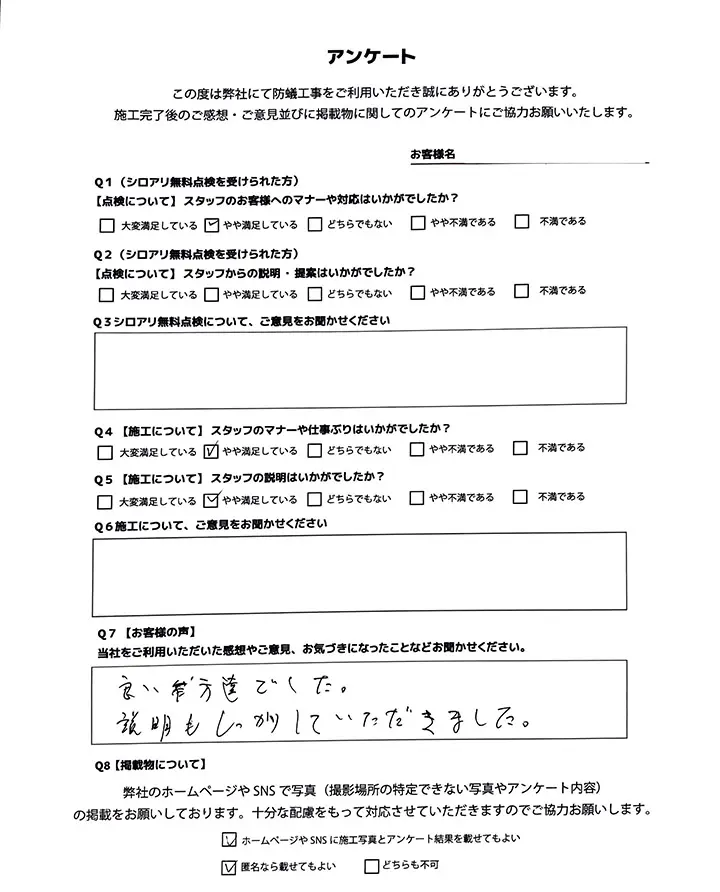 アンケート
この度は弊社にて防蟻工事をご利用いただき誠にありがとうございます。
施工完了後のご感想・ご意見並びに掲載物に関してのアンケートにご協力お願いいたします。
お客様名
Q1（シロアリ無料点検を受けられた方）
【点検について】スタッフのお客様へのマナーや対応はいかがでしたか？
□ 大変満足している ☑ やや満足している □ どちらでもない □ やや不満である □ 不満である
Q2（シロアリ無料点検を受けられた方）
【点検について】スタッフからの説明・提案はいかがでしたか？
□ 大変満足している □ やや満足している □ どちらでもない □ やや不満である □ 不満である
Q3シロアリ無料点検について、ご意見をお聞かせください
Q4【施工について】スタッフのマナーや仕事ぶりはいかがでしたか？
□ 大変満足している ☑ やや満足している □ どちらでもない □ やや不満である □ 不満である
Q5【施工について】スタッフの説明はいかがでしたか？
□ 大変満足している ☑ やや満足している □ どちらでもない □ やや不満である □ 不満である
Q6施工について、ご意見をお聞かせください
Q7【お客様の声】
当社をご利用いただいた感想やご意見、お気づきになったことなどお聞かせください。
良い方達でした。
説明もしっかりしていただきました。
Q8【掲載物について】
弊社のホームページやSNSで写真（撮影場所の特定できない写真やアンケート内容）
の掲載をお願いしております。十分な配慮をもって対応させていただきますのでご協力お願いします。
☑ ホームページやSNSに施工写真とアンケート結果を載せてもよい
☑ 匿名なら載せてもよい □ どちらも不可